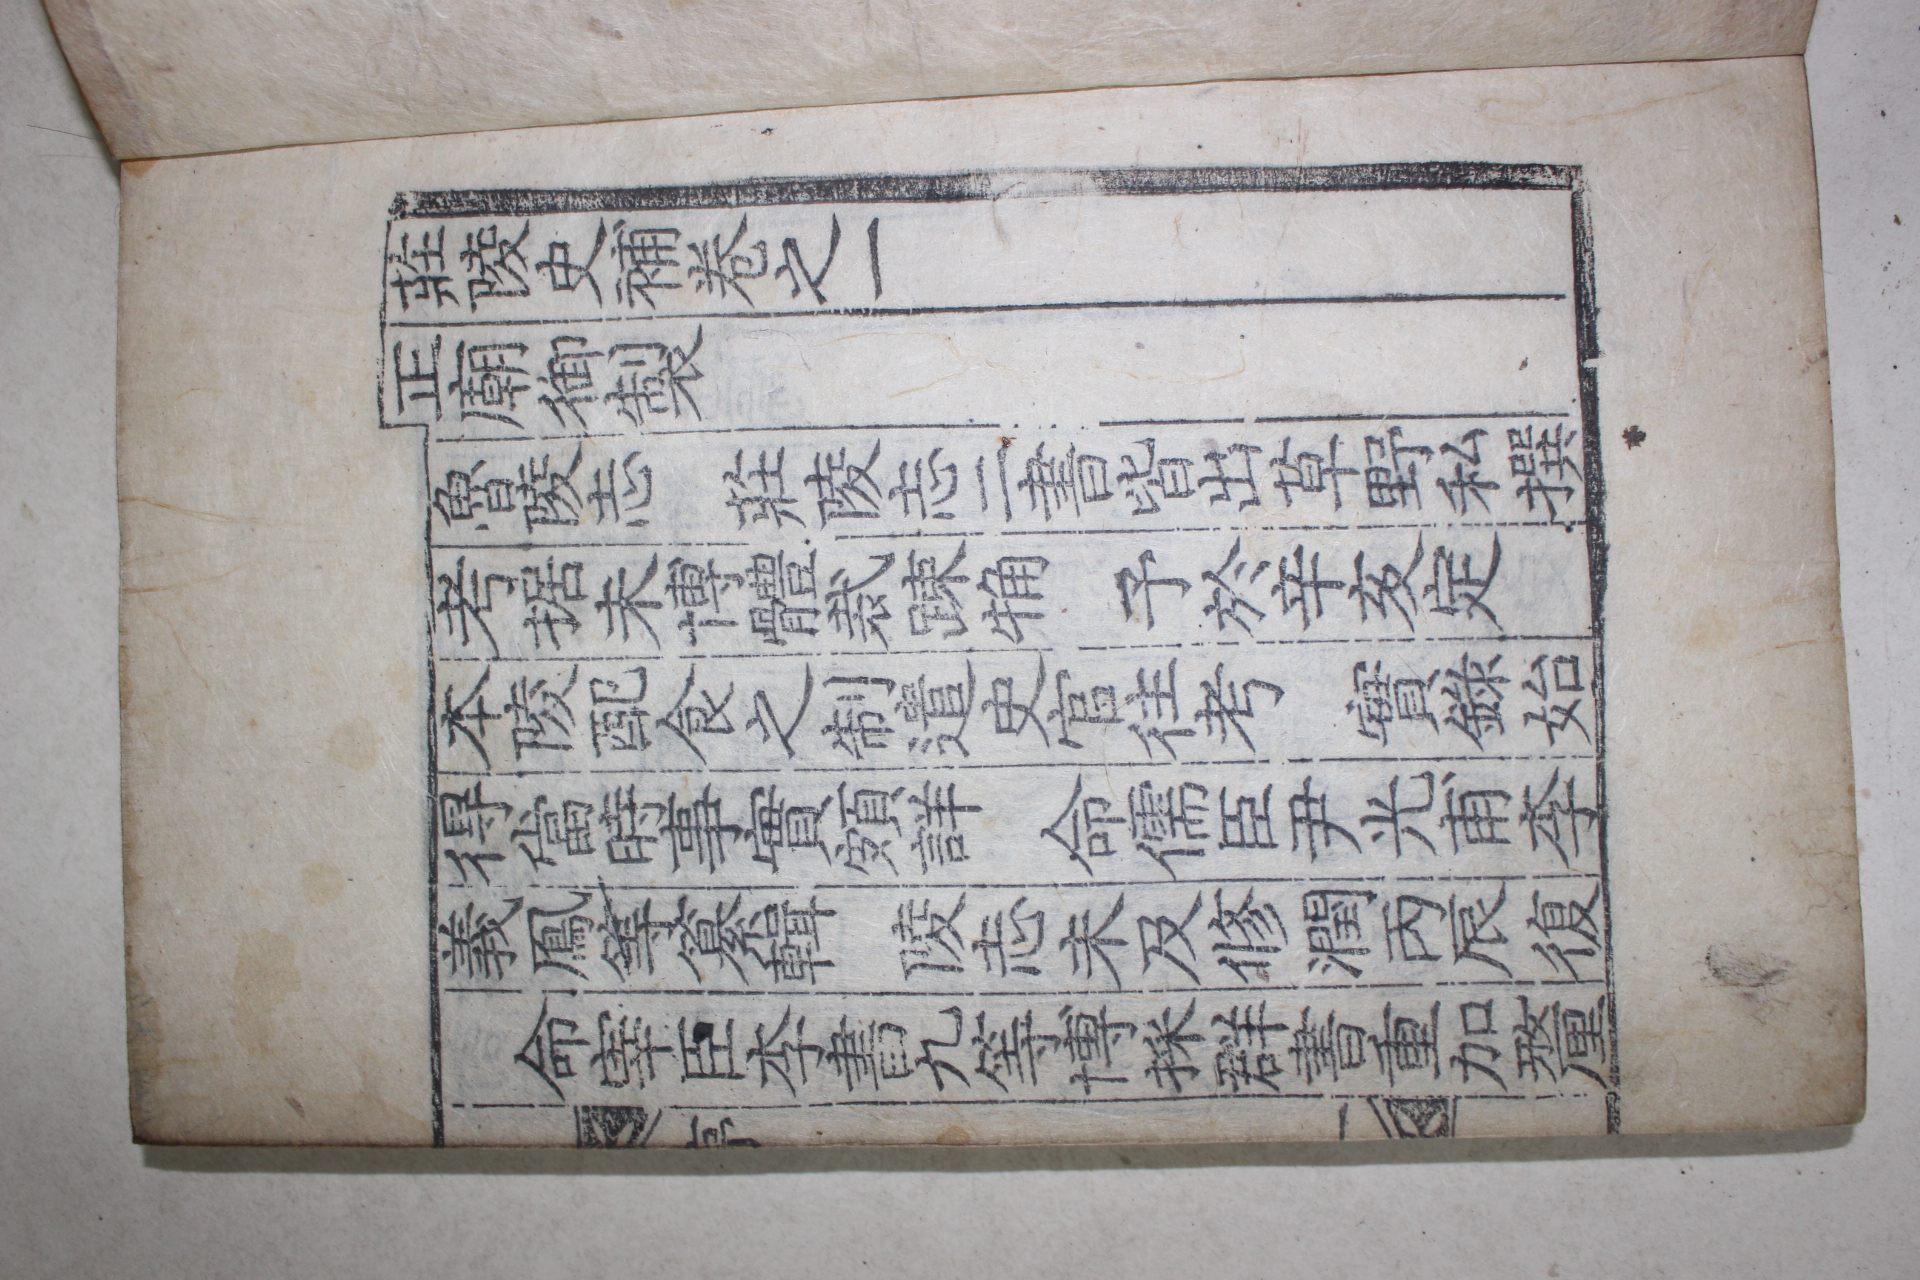 莊陵史補卷之一
正廟御製
魯陵志 莊陵志二書皆出草野私撰
考据未博體裁踈舛 予於辛亥定
本陵配食之制遣史官往考 實錄始
得當時事實頗詳 命儒臣尹光普李
義鳳等裒緝 陵志未及修潤丙辰復
命宰臣李書九等博採群書重加發凡